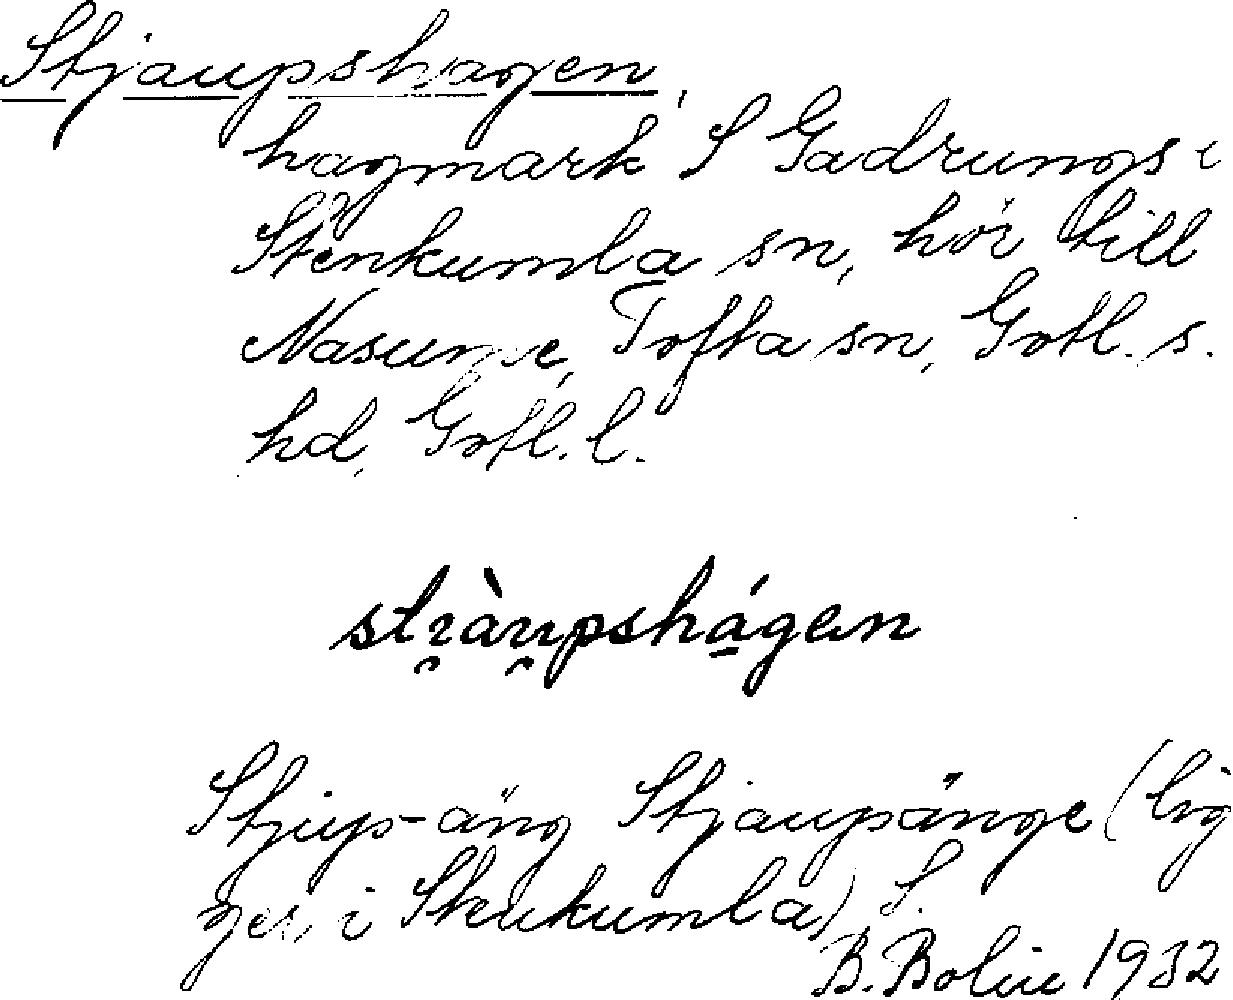 Stjaupshagen,
hagmark S Gadrungs i
Stenkumla sn, hör till
Nasume, Tofta sn, Gotl. s.
hd, Gotl. l.
sti̯àu̯pshágen
Stjup-äng Stjaupänge (lig
ger i Stenkumla) S.
B. Bolin 1932